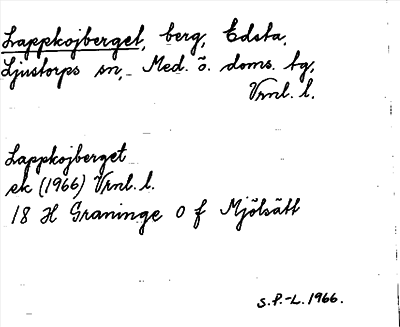 Lappkojberget, berg, Edsta,
Ljustorps sn, Med. ö. doms. tg,
Vrnl. l.
Lappkojberget
ek (1966) Vrnl. l.
18 H Graninge 0 f Mjölsätt
S.P.-L. 1966.